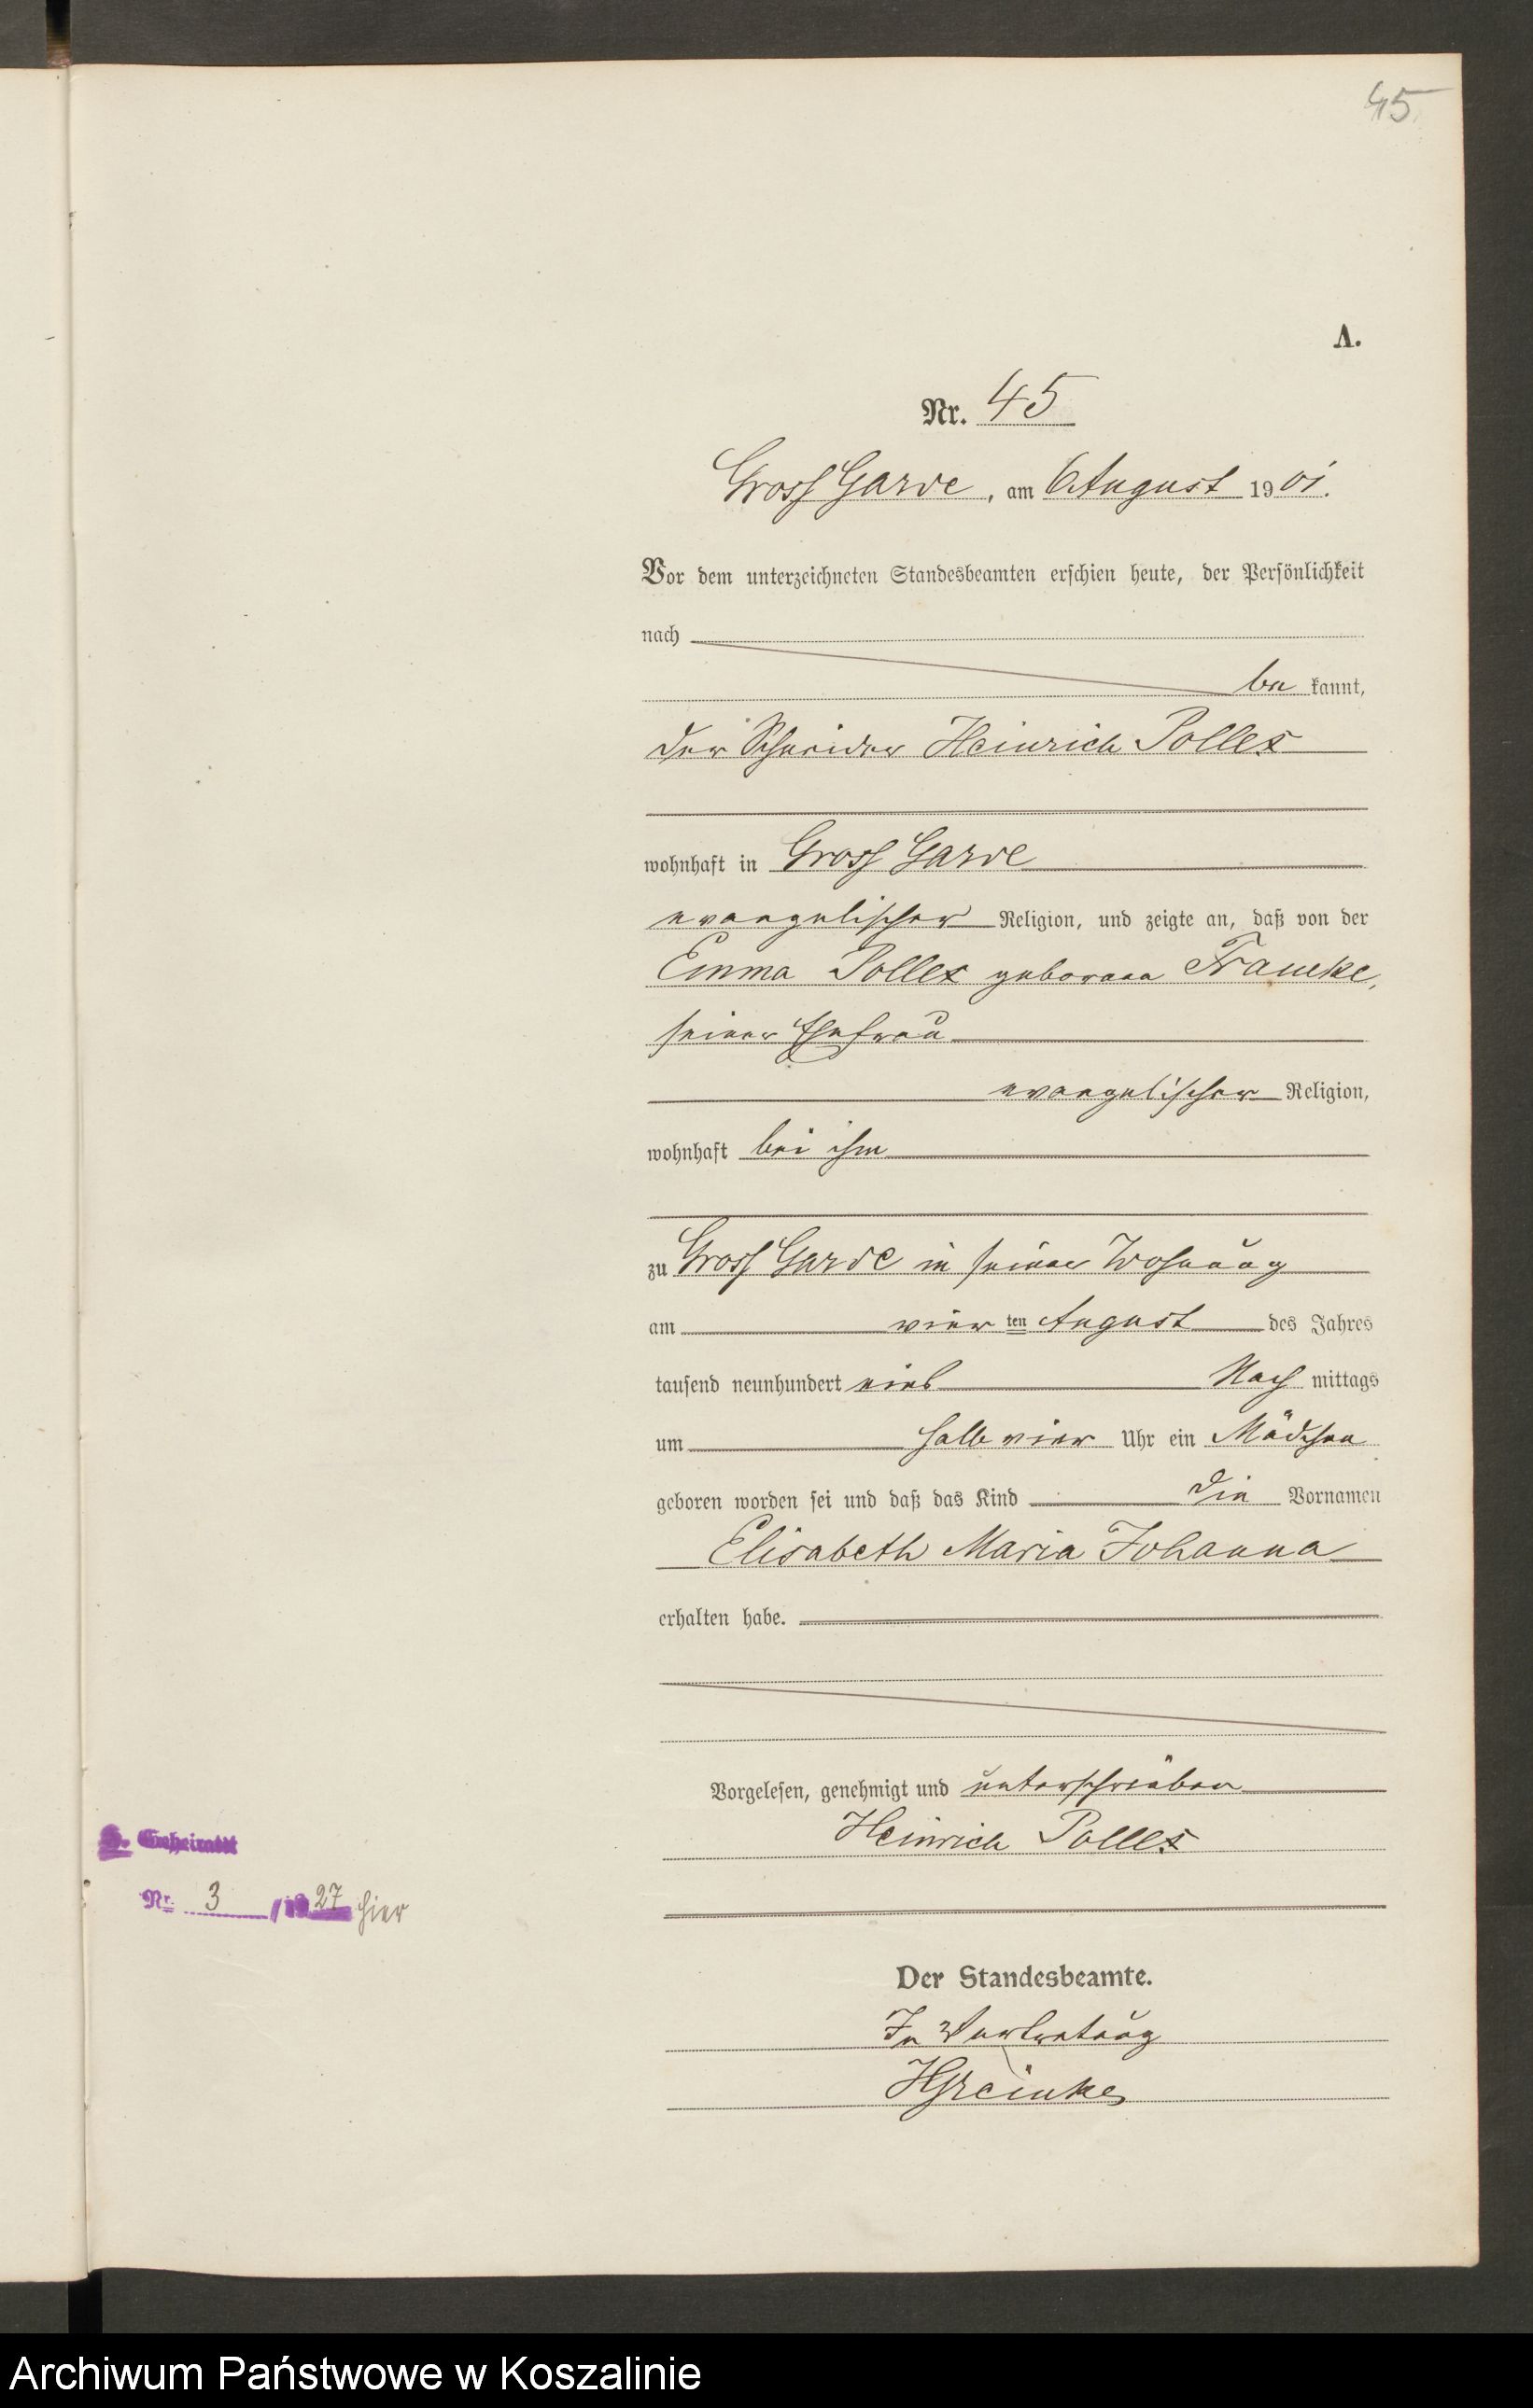 45.
A.
Nr. 45
Gross Garde, am 6 August 1901.
Vor dem unterzeichneten Standesbeamten erschien heute, der Persönlichkeit
nach
be kannt,
der Schneider Heinrich Pollex
wohnhaft in Gross Garde
evangelischer Religion, und zeigte an, daß von der
Emma Pollex geborene Francke,
seiner Ehefrau
evangelischer Religion,
wohnhaft bei ihm
zu Gross Garde in seiner Wohnung
am vier ten August des Jahres
tausend neunhundert eins Nach mittags
um halb vier Uhr ein Mädchen
geboren worden sei und daß das Kind die Vornamen
Elisabeth Maria Johanna
erhalten habe.
Vorgelesen, genehmigt und unterschrieben
Heinrich Pollex
Geheiratet
Nr. 3 /1927 hier
Der Standesbeamte.
In Vertretung
Archiwum Państwowe w Koszalinie